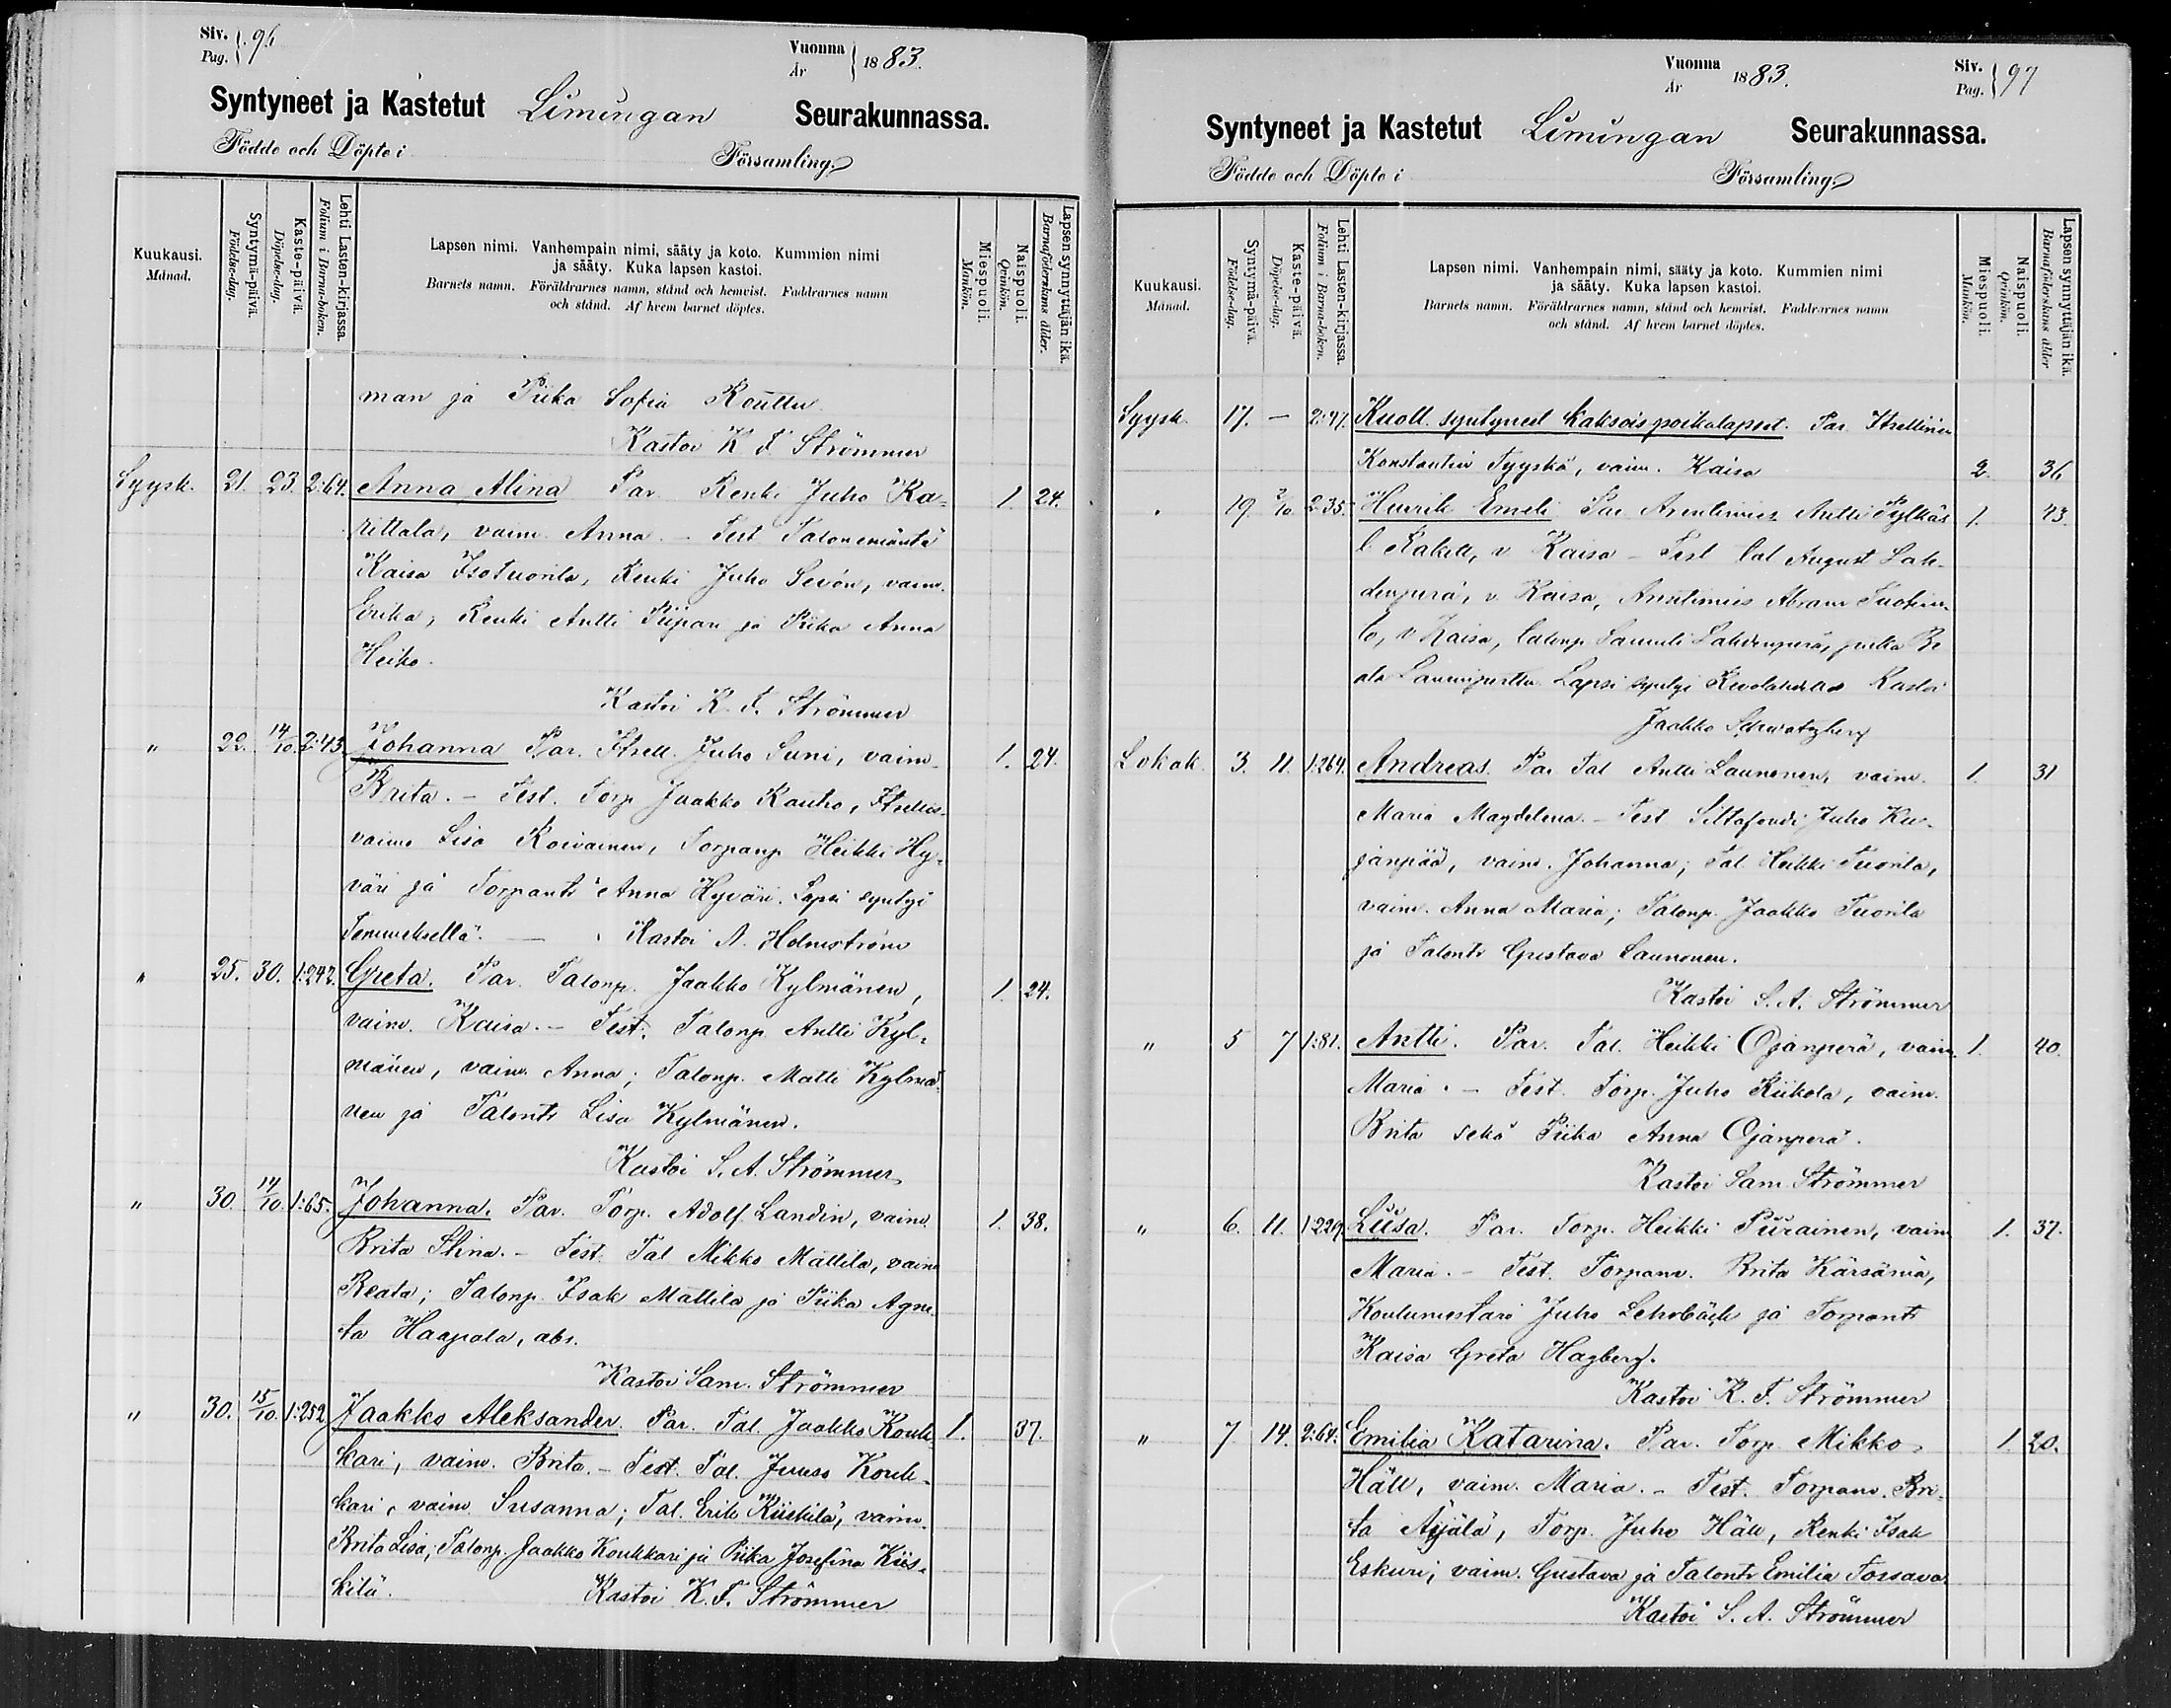 Siv. Pag. 96
Vuonna År 1883.
Syntyneet ja Kastetut Limingan Seurakunnassa.
Födde och Döpte i Församling.
Kuukausi. Månad.
Syntymä-päivä. Födelse-dag.
Kaste-päivä. Döpelse-dag.
Lehti Lasten-kirjassa. Folium i Barna-boken.
Lapsen nimi. Vanhempain nimi, sääty ja koto. Kummien nimi
ja sääty. Kuka lapsen kastoi.
Barnets namn. Föräldrarnes namn, stånd och hemvist. Faddrarnes namn
och stånd. Af hvem barnet döptes.
Miespuoli. Mankön.
Naispuoli. Qvinkön.
Lapsen synnyttäjän ikä. Barnaföderskans ålder.
man ja Piika Sofia Routtu
Kastoi K F Strömmer
Syysk. 21. 23. 2:64. Anna Alina Par. Renki Juho Ka- 1. 24.
rittala, vaim. Anna. - Test Talonemäntä
Kaisa Isotuorila, Renki Juho Sevón, vaim.
Erika, Renki Antti Piipari ja Piika Anna
Heiko.
Kastoi K. F. Strömmer
" 22. 14/10. 2:43. Johanna Par. Itsell. Juho Suni, vaim. 1. 24.
Brita. - Test. Torp Jaakko Rautio, Itsellis-
vaimo Lisa Koivainen, Torpanp Heikki Hy-
väri ja Torpantr Anna Hyväri. Lapsi syntyi
Temmeksellä. - Kastoi A. Holmström
" 25. 30. 1:242. Greta. Par. Talonp. Jaakko Kylmänen, 1. 24.
vaim. Kaisa. - Test. Talonp Antti Kyl-
mänen, vaim. Anna; Talonp. Matti Kylmä-
nen ja Talontr Lisa Kylmänen.
Kastoi S. A. Strömmer
" 30. 14/10. 1:65. Johanna. Par. Torp. Adolf Landin, vaim. 1. 38.
Brita Stina. - Test. Tal Mikko Mattila, vaim
Beata; Talonp. Isak Mattila ja Piika Agne-
ta Haapala, abs.
Kastoi Sam. Strömmer
" 30. 15/10. 1:252. Jaakko Aleksander. Par. Tal. Jaakko Kouk- 1. 37.
kari, vaim. Brita. - Test. Tal. Juuso Kouk-
kari, vaim. Susanna; Tal. Erik Kiiskilä, vaim.
Brita Lisa; Talonp. Jaakko Koukkari ja Piika Josefina Kiis-
kilä. Kastoi K. F. Strömmer
Vuonna År 1883.
Siv. Pag. 97
Syntyneet ja Kastetut Limingan Seurakunnassa.
Födde och Döpte i Församling.
Kuukausi. Månad.
Syntymä-päivä. Födelse-dag.
Kaste-päivä. Döpelse-dag.
Lehti Lasten-kirjassa. Folium i Barna-boken.
Lapsen nimi. Vanhempain nimi, sääty ja koto. Kummien nimi
ja sääty. Kuka lapsen kastoi.
Barnets namn. Föräldrarnes namn, stånd och hemvist. Faddrarnes namn
och stånd. Af hvem barnet döptes.
Miespuoli. Mankön.
Naispuoli. Qvinkön.
Lapsen synnyttäjän ikä. Barnaföderskans ålder
Syysk. 17. - 2:97. Kuoll. syntyneet kaksoispoikalapset. Par. Itsellinen
Konstantin Tyyskä, vaim. Kaisa 2. 36
" 19. 2/10. 2:35. Henrik Emeli Par Arentimies Antti Pylkäs 1. 43.
l. Rakell, v Kaisa - Test tal August Lah-
denperä, v. Kaisa, Arentimies Abram Tuohim-
v Kaisa, talonp. Samuli Lahdenperä, piika Be
ata Lapsi syntyi Kastoi
Jaakko Schwartzberg
Lokak. 3. 11. 1:264. Andreas. Par Tal Antti Launonen, vaim. 1. 31
Maria Magdelena. - Test Siltafouti Juho Ku-
janpää, vaim. Johanna; Tal. Heikki Tuorila,
vaim. Anna Maria; Talonp. Jaakko Tuorila
ja Talontr Gustava Launonen.
Kastoi S. A. Strömmer
" 5 7 1:81. Antti. Par. Tal. Heikki Ojanperä, vaim. 1. 40.
Maria. - Test. Torp. Juho Riikola, vaim.
Brita sekä Piika Anna Ojanperä.
Kastoi Sam Strömmer
" 6. 11. 1:229. Liisa. Par. Torp. Heikki Piirainen, vaim 1. 37.
Maria. - Test. Torpanv. Brita Kärsämä,
Koulumestari Juho Lehobäck ja Torpantr
Kaisa Greta Hagberg.
Kastoi K. F. Strömmer
" 7 14. 2:64. Emilia Katarina. Par. Torp. Mikko 1. 20.
Häll, vaim. Maria. - Test. Torpanv. Bri-
ta Äijälä, Torp. Juho Häll, Renki Isak
Eskuri, vaim. Gustava ja Talontr Emilia Tossava
Kastoi S. A. Strömmer